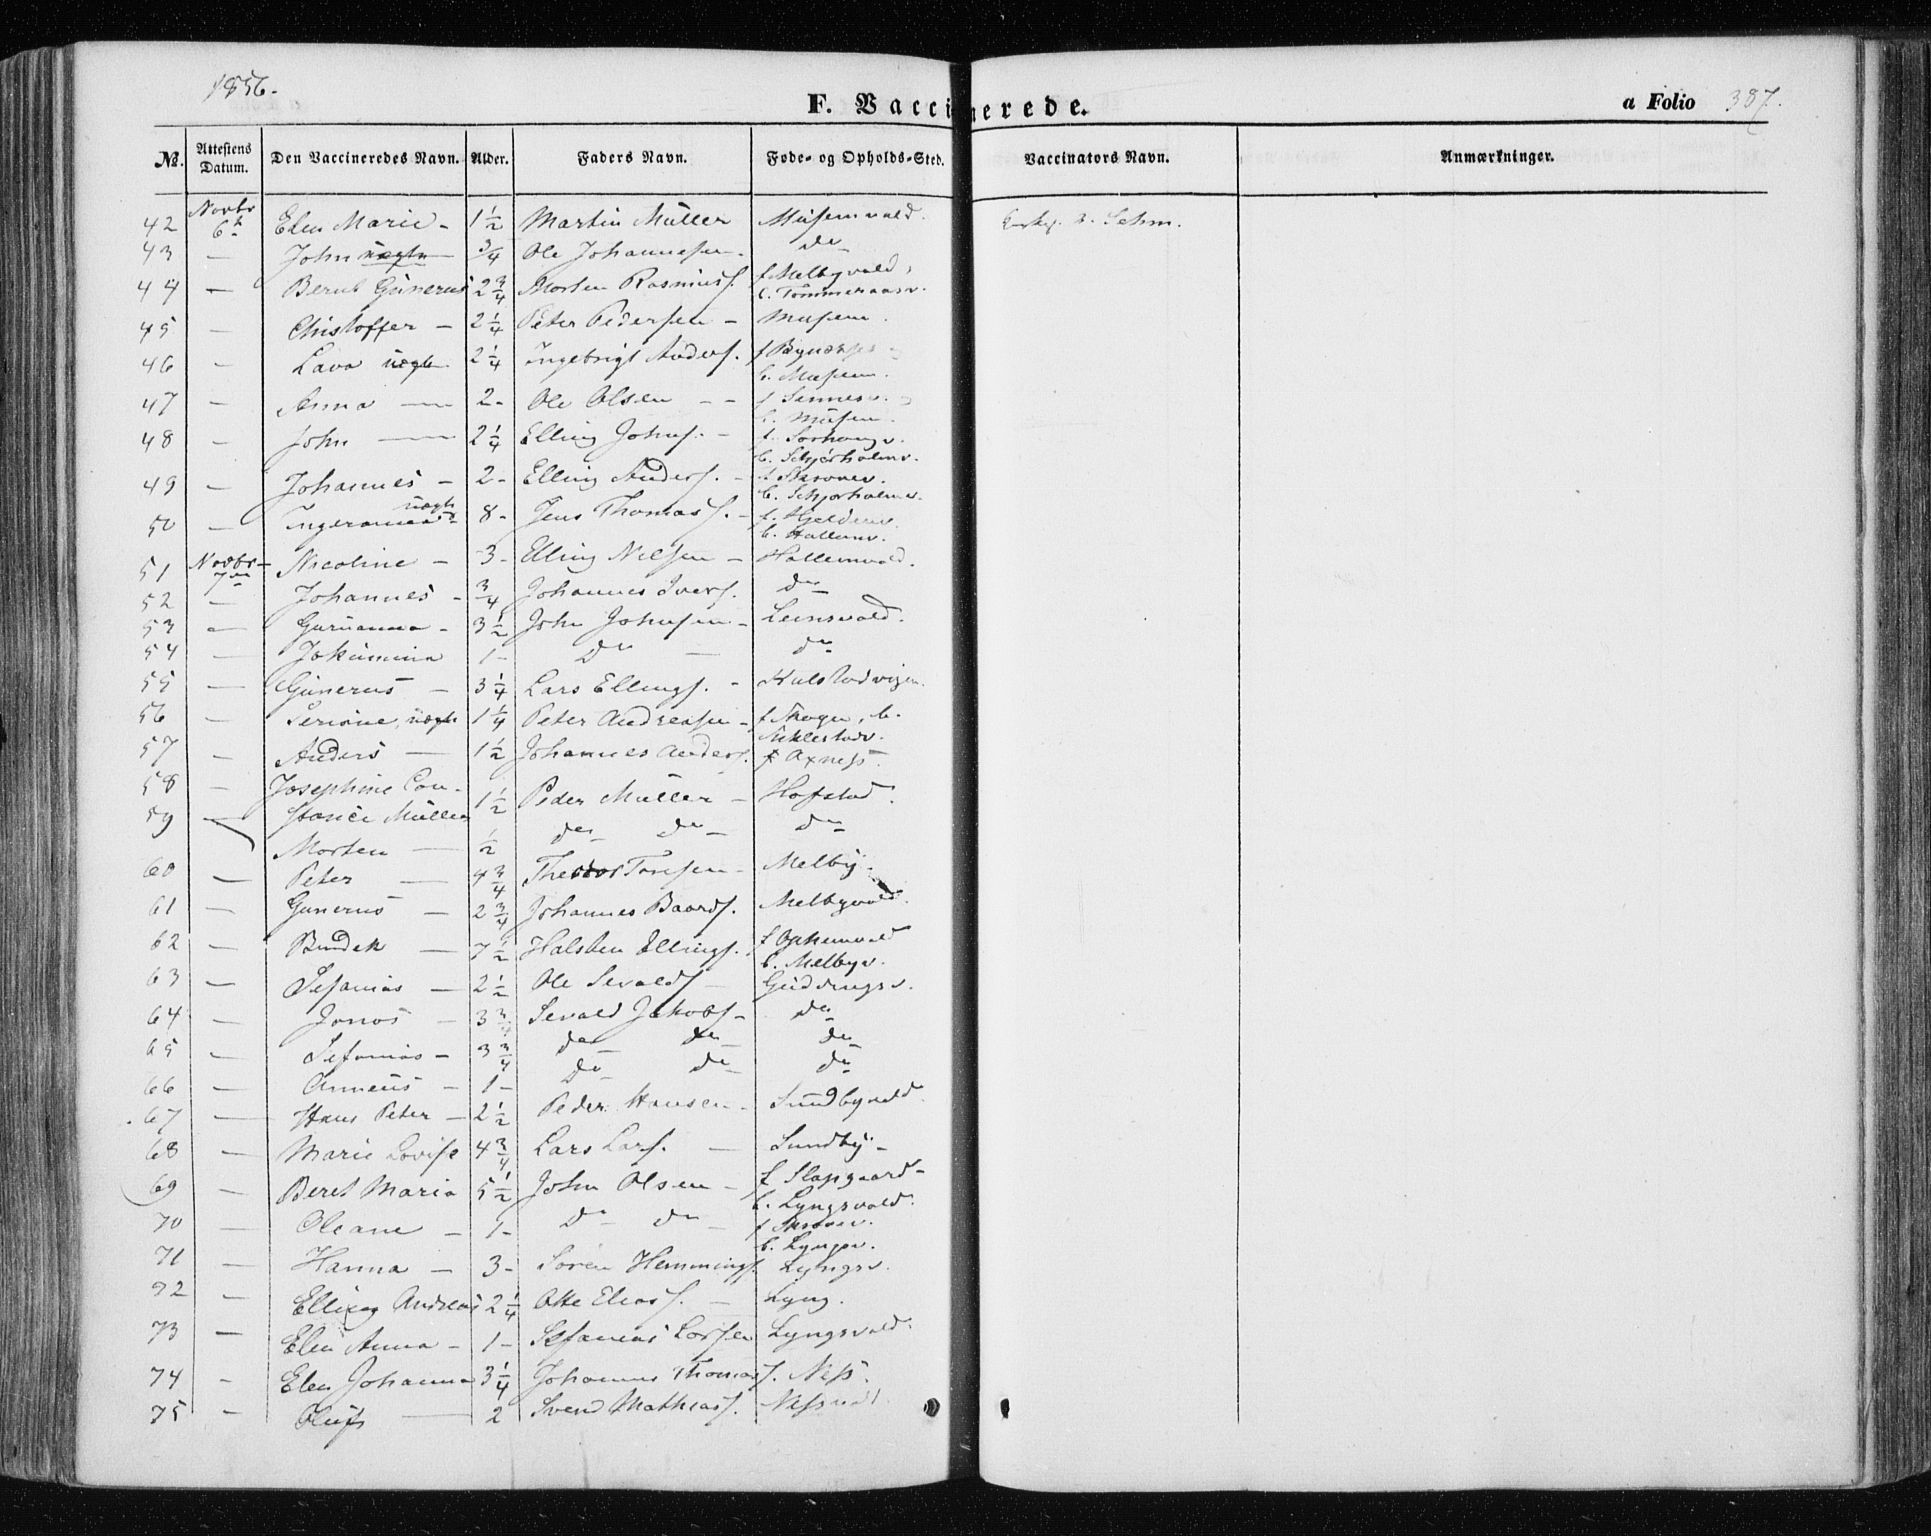 1856.
F. Vaccinerede.
a Folio 387.
No. Attestens Datum. Den Vaccineredes Navn. Alder. Faders Navn. Føde- og Opholds-Sted. Vaccinators Navn. Anmærkninger.
42 Novbr 6te Elen Marie - 1 1/2 Martin Müller Musemvald. 
43 — John uægte 3/4 Ole Johannesen - do
44 — Bernt Gunerus 2 3/4 Morten Rasmuss. f Melbyvald,
b. Tømmeraasv.
45 — Christoffer - 2 1/4 Peter Pedersen - Musem.
46 — Lava uægte 2 1/4 Ingebrigt Anders. f Bynæsset
b. Musem.
47 — Anna — 2 - Ole Olsen - - f
b. Musem.
48 — John — 2 1/4 Elling Johns. - f.
b. Schjørholmv.
49 — Johannes - 2 - Elling Anders. - f Skrovev.
b. Schjørholmv.
50 — uægte 8 - Jens Thomass. - f. Hjeldenv.
b. Hallemv.
51 Novbr 7de Nicoline - 3 - Elling Nilsen - Hallemvald.
52 — Johannes - 3/4 Johannes Ivers. do
53 — Guruanna - 3 1/2 John Johnsen - Leinsvald.
54 — Jokumina 1 - Do — do
55 — Gunerus - 3 1/4 Lars Ellings. -
56 — Seriane, uægte 1 1/4 Peter Andreasen - f Skogn, b.
Stiklestadv.
57 — Anders — 1 1/2 Johannes Anders. f Axness.
58 — Josephine Con-
stance Müller 1 1/2 Peder Müller - Hofstad.
59 — Morten — 1/2 do do do
60 — Peter — 4 3/4 Theodor Tonesen - Melby.
61 — Gunerus - 2 3/4 Johannes Baards. Melbyvald.
62 — Bendek — 7 1/2 Halsten Ellings. f Ophemvald
b. Melbyv.
63 — Sefanias - 2 1/2 Ole Sevalds - Guddingsv.
64 — Jonas - 3 3/4 Sevald Jakobs - do
65 — Sefanias - 3 3/4 do do do
66 — Anneus - 1 - Do do do
67 — Hans Peter - 2 1/2 Peder Hansen - Sundbyvald.
68 — Marie Lovise 4 3/4 Lars Lars. — Sundby -
69 — Beret Maria 5 1/2 John Olsen - f Slapgaard -
b. Lyngsvald.
70 — Oleane - 1 - Do do - f Skrovev.
b. Lyngsv.
71 — Hanna - 3 - Søren Hemmings. Lyngsv.
72 — Elling Andreas 2 1/4 Otte Elias s. — Lyng.
73 — Elen Anna - 1 - Sefanias Larsen Lyngsvald.
74 - Elen Johanna 3 1/4 Johannes Thomass. Ness.
75 - — 2 Svend Mathiass. Nessvald